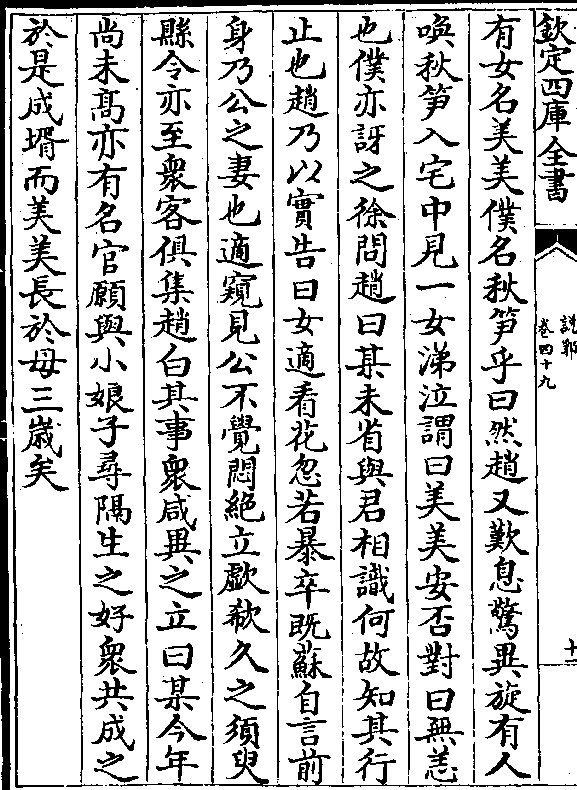 欽定四庫全書
說郛
卷四十九
十二
有女名美美僕名秋笋乎曰然趙又歎息驚異旋有人
喚秋笋入宅中見一女涕泣謂曰美美安否對曰無恙
也僕亦訝之徐問趙曰某未省與君相識何故知其行
止也趙乃以實告曰女適看花忽若暴卒既蘇自言前
身乃公之妻也適窺見公不覺悶絶立歔欷久之須臾
縣令亦至衆客俱集趙白其事衆咸異之立曰某今年
尚未髙亦有名官願與小娘子尋隔生之好衆共成之
於是成壻而美美長於母三歲矣